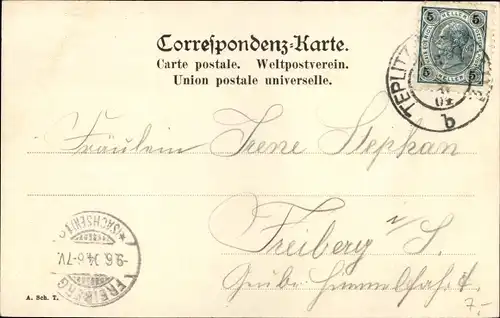 Correspondenz-Karte.
Carte postale. Weltpostverein.
Union postale universelle.
5 5
HELLER
5 5
TEPLITZ
b
Fräulein Irene Stephan
Freiberg i/S.
Grube Himmelfahrt
(SACHSEN) 1
-9.6.04.6-7V.
FREIBERG
A. Sch. T.
7.-